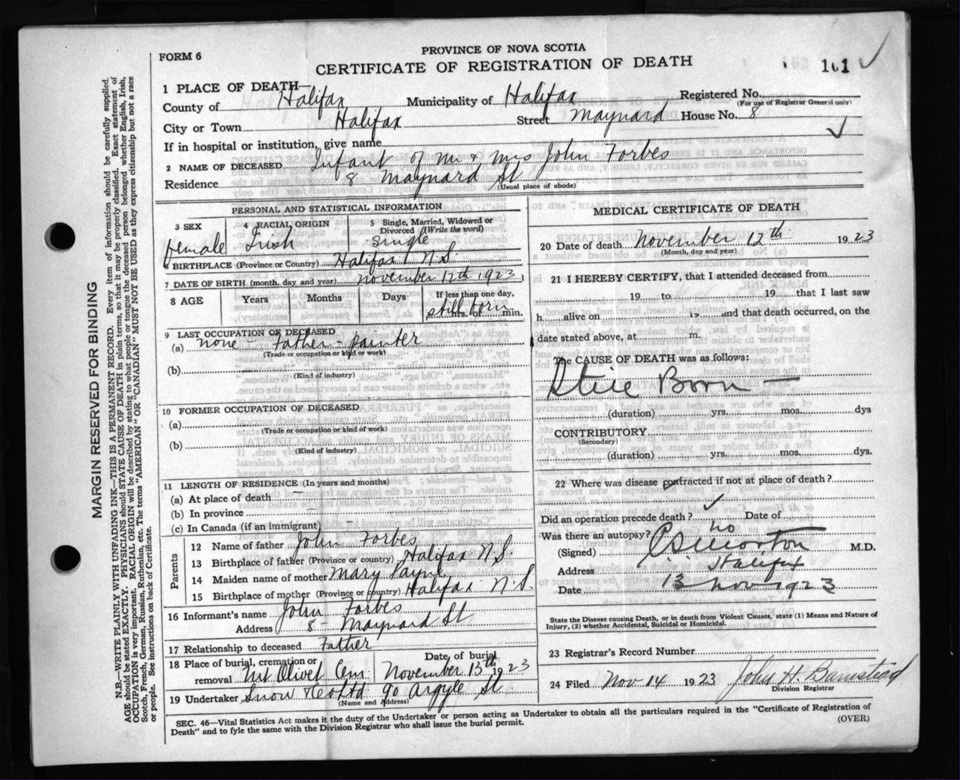 FORM 6
PROVINCE OF NOVA SCOTIA
CERTIFICATE OF REGISTRATION OF DEATH
101
1 PLACE OF DEATH—
Registered No.
(For use of Registrar General only)
County of Halifax Municipality of Halifax
City or Town Halifax Street Maynard House No. 8
If in hospital or institution, give name
2 NAME OF DECEASED Infant of Mr & Mrs John Forbes
Residence 8 Maynard St
(Usual place of abode)
PERSONAL AND STATISTICAL INFORMATION
3 SEX 4 RACIAL ORIGIN 5 Single, Married, Widowed or Divorced (Write the word)
female Irish Single
6 BIRTHPLACE (Province or Country) Halifax N.S.
7 DATE OF BIRTH (month, day, and year) November 12th 1923
8 AGE Years Months Days If less than one day,
still born hrs. or min.
9 LAST OCCUPATION OF DECEASED
(a) none - Father - painter
(Trade or occupation or kind of work)
(b)
(Kind of industry)
10 FORMER OCCUPATION OF DECEASED
(a)
(Trade or occupation or kind of work)
(b)
(Kind of industry)
11 LENGTH OF RESIDENCE (In years and months)
(a) At place of death
(b) In province
(c) In Canada (if an immigrant)
Parents
12 Name of father John Forbes
13 Birthplace of father (Province or country) Halifax N.S.
14 Maiden name of mother Mary
15 Birthplace of mother (Province or country) Halifax N S.
16 Informant's name John Forbes
Address 8 - Maynard St
17 Relationship to deceased Father
18 Place of burial, cremation or removal Mt Olivet Cem Date of burial November 13th 1923
19 Undertaker Snow & Co Ltd 90 Argyle St.
(Name and Address)
MEDICAL CERTIFICATE OF DEATH
20 Date of death November 12th 1923
(Month, day and year)
21 I HEREBY CERTIFY, that I attended deceased from
19 to 19 that I last saw
h alive on 19 and that death occurred, on the
date stated above, at m.
The CAUSE OF DEATH was as follows:
Still Born —
(duration) yrs. mos. dys
CONTRIBUTORY
(Secondary)
(duration) yrs. mos. dys.
22 Where was disease contracted if not at place of death?
Did an operation precede death? no Date of
Was there an autopsy?
(Signed) M.D.
Address Halifax
Date 13 Nov 1923
State the Disease causing Death, or in death from Violent Causes, state (1) Means and Nature of
Injury, (2) whether Accidental, Suicidal or Homicidal.
23 Registrar's Record Number
24 Filed Nov 14 1923 John H. Barnstead
Division Registrar
SEC. 46—Vital Statistics Act makes it the duty of the Undertaker or person acting as Undertaker to obtain all the particulars required in the "Certificate of Registration of
Death" and to fyle the same with the Division Registrar who shall issue the burial permit.
(OVER)
MARGIN RESERVED FOR BINDING
N.B.—WRITE PLAINLY WITH UNFADING INK—THIS IS A PERMANENT RECORD. Every item of information should be carefully supplied.
AGE should be stated EXACTLY. PHYSICIANS should STATE CAUSE OF DEATH in plain terms, so that it may be properly classified. Exact statement of
OCCUPATION is very important. RACIAL ORIGIN will be described by stating to what people or tongue the deceased person belonged, whether English, Irish,
Scotch, French, German, Russian, Ruthenian, etc. The terms "AMERICAN" or "CANADIAN" MUST NOT BE USED as they express citizenship but not a race
or people. See instructions on back of Certificate.